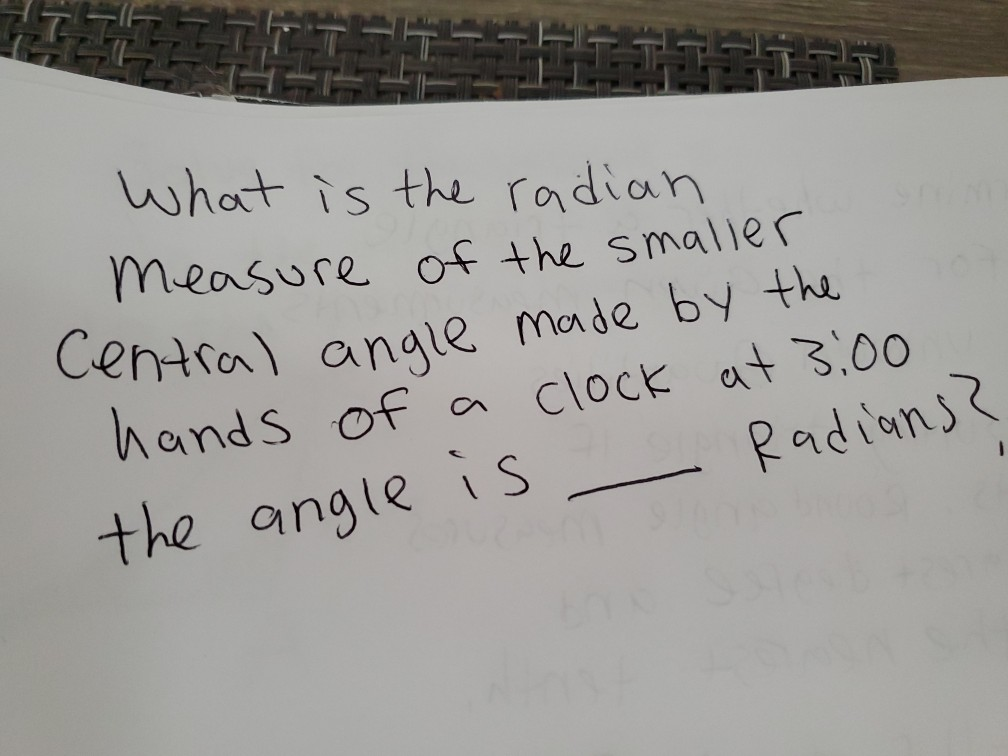 What is the radian
measure of the smaller
Central angle made by the
hands of a clock at 3:00
the angle is ___ Radians?